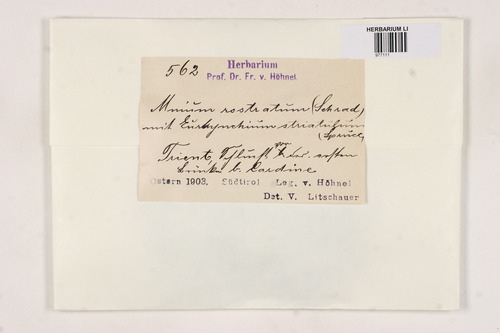 HERBARIUM LI
562
Herbarium
Prof. Dr. Fr. v. Höhnel
Mnium rostratum (Schrad)
mit Eurhynchium striatulum
(Spruce)
Trient,
b. Sardine
Ostern 1903, Südtirol Leg. v. Höhnel
Det. V. Litschauer